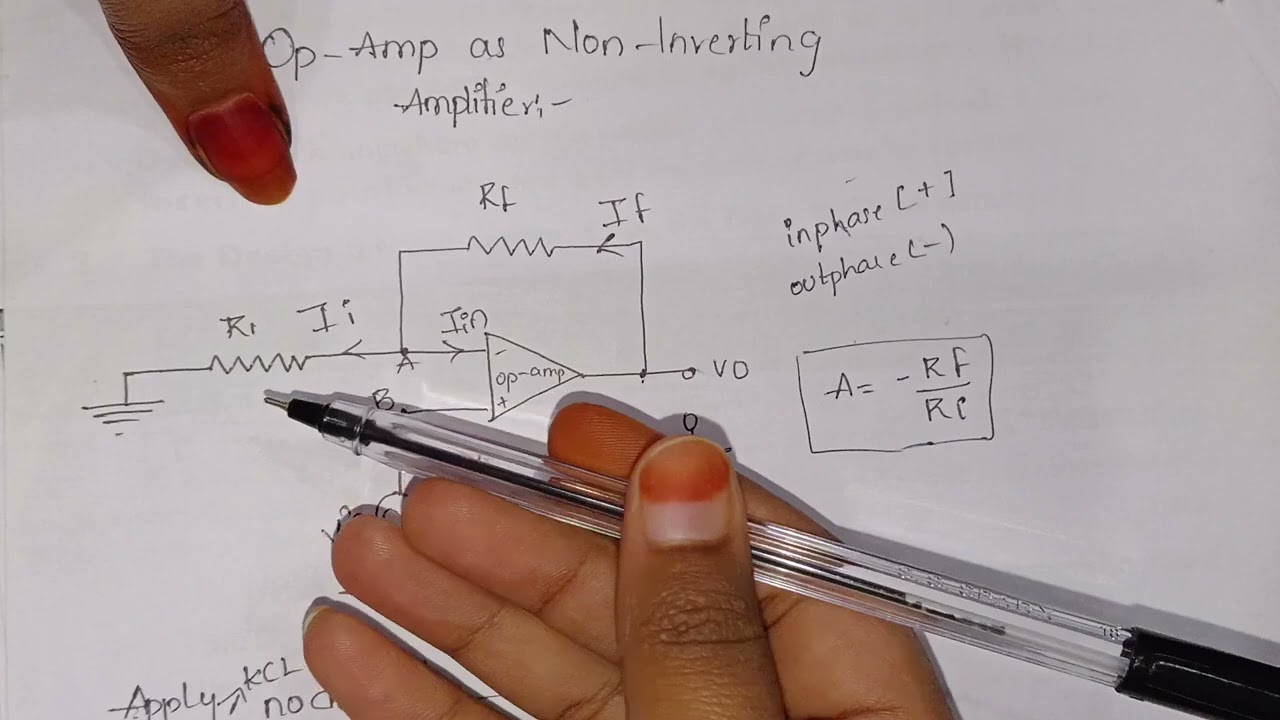 Op-Amp as Non-Inverting
Amplifier:-
Rf
If
inphase [+]
outphase (-)
R1
Ii
Iin
A
-
op-amp
+
B
VO
A = - Rf
Ri
Apply KCL